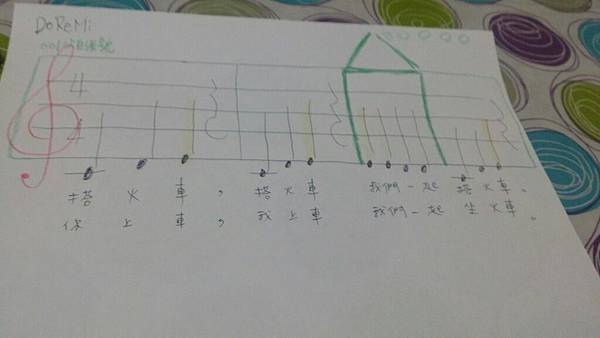 DoReMi
4
4
搭 火 車 , 搭 火 車 我們一起 搭 火 車 。
你 上 車 , 我 上 車 我們一起 坐 火 車 。